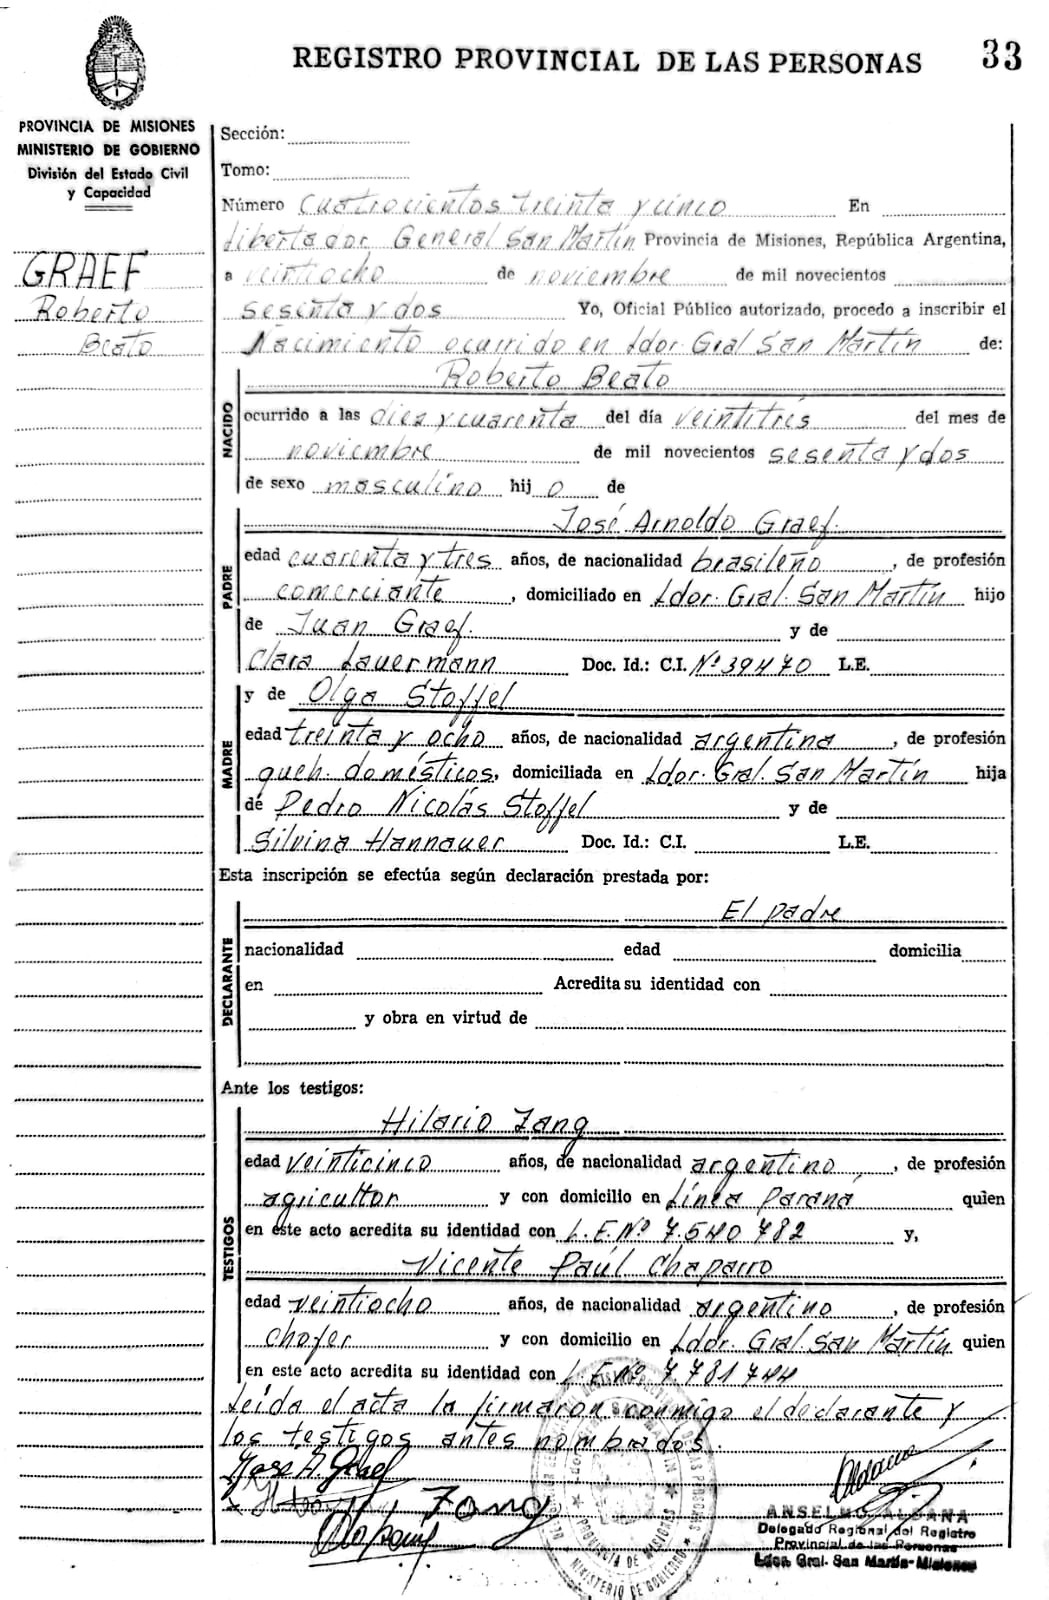 REGISTRO PROVINCIAL DE LAS PERSONAS 33
PROVINCIA DE MISIONES
MINISTERIO DE GOBIERNO
División del Estado Civil
y Capacidad
GRAEF
Roberto
Beato
Sección:
Tomo:
Número Cuatrocientos treinta y cinco En
Libertador General San Martín Provincia de Misiones, República Argentina,
a veintiocho de noviembre de mil novecientos
sesenta y dos Yo, Oficial Público autorizado, procedo a inscribir el
Nacimiento ocurrido en Ldor. Gral San Martín de:
NACIDO
Roberto Beato
ocurrido a las diez y cuarenta del día veintitrés del mes de
noviembre de mil novecientos sesenta y dos
de sexo masculino hij o de
PADRE
José Arnoldo Graef.
edad cuarenta y tres años, de nacionalidad brasileño, de profesión
comerciante, domiciliado en Ldor. Gral. San Martín hijo
de Juan Graef. y de
Clara Lauermann Doc. Id.: C.I. Nº 39470 L.E.
MADRE
y de Olga Stoffel
edad treinta y ocho años, de nacionalidad argentina, de profesión
queh. domésticos, domiciliada en Ldor. Gral. San Martín hija
de Pedro Nicolás Stoffel y de
Silvina Hannauer Doc. Id.: C.I. L.E.
Esta inscripción se efectúa según declaración prestada por:
DECLARANTE
El padre
nacionalidad edad domicilia
en Acredita su identidad con
y obra en virtud de
Ante los testigos:
TESTIGOS
Hilario Zang
edad veinticinco años, de nacionalidad argentino, de profesión
agricultor y con domicilio en Línea Paraná quien
en este acto acredita su identidad con L.E.Nº 7.540.782 y,
Vicente Paúl Chaparro
edad veintiocho años, de nacionalidad argentino, de profesión
chofer y con domicilio en Ldor. Gral. San Martín quien
en este acto acredita su identidad con L.E.Nº 7.781.744
Leída el acta la firmaron conmigo el declarante y
los testigos antes nombrados.
José A. Graef
Zang
ANSELMO ALDANA
Delegado Regional del Registro
Provincial de las Personas
Ldor. Gral. San Martín-Misiones
PROVINCIA DE MISIONES
MINISTERIO DE GOBIERNO